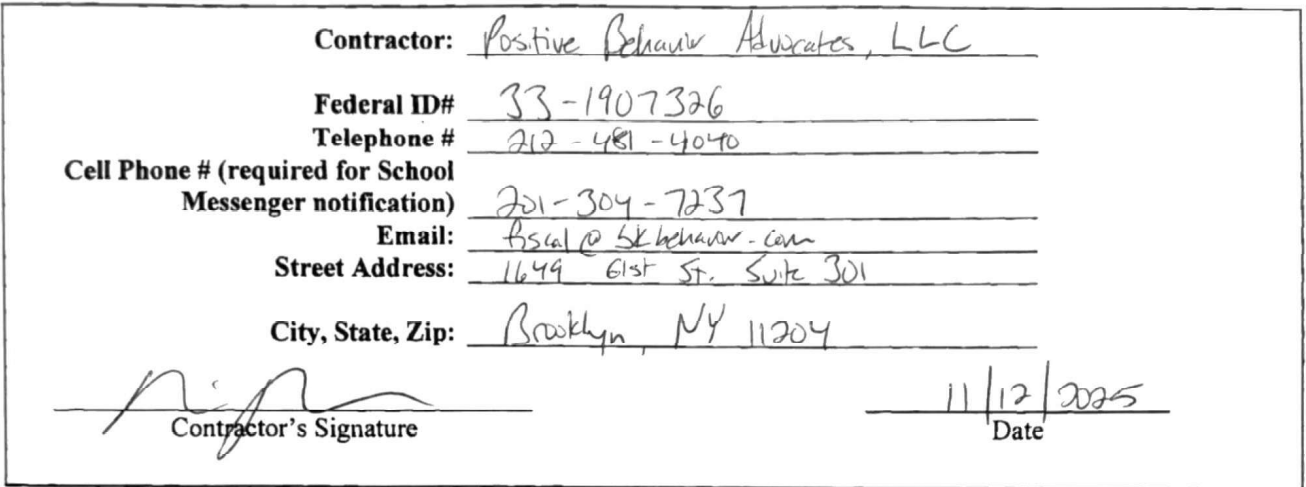 Contractor: Positive Behavior Advocates, LLC
Federal ID# 33-1907326
Telephone # 212-481-4040
Cell Phone # (required for School
Messenger notification) 201-304-7237
Email: fiscal@bkbehavior.com
Street Address: 1649 61st St. Suite 301
City, State, Zip: Brooklyn, NY 11204
11/12/2025
Contractor's Signature Date